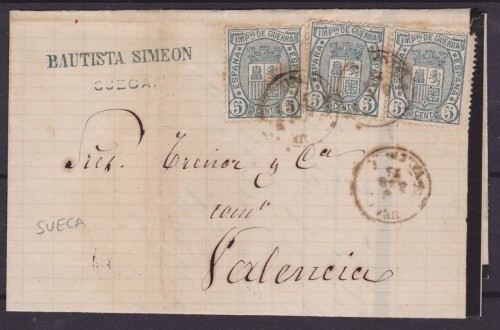 BAUTISTA SIMEON
SUECA.
IMPTO DE GUERRA
ESPAÑA
5 CENT 5
IMPTO DE GUERRA
ESPAÑA
5 CENT 5
IMPTO DE GUERRA
ESPAÑA
5 CENT 5
Sres. Trenor y Ca
Valencia
SUECA